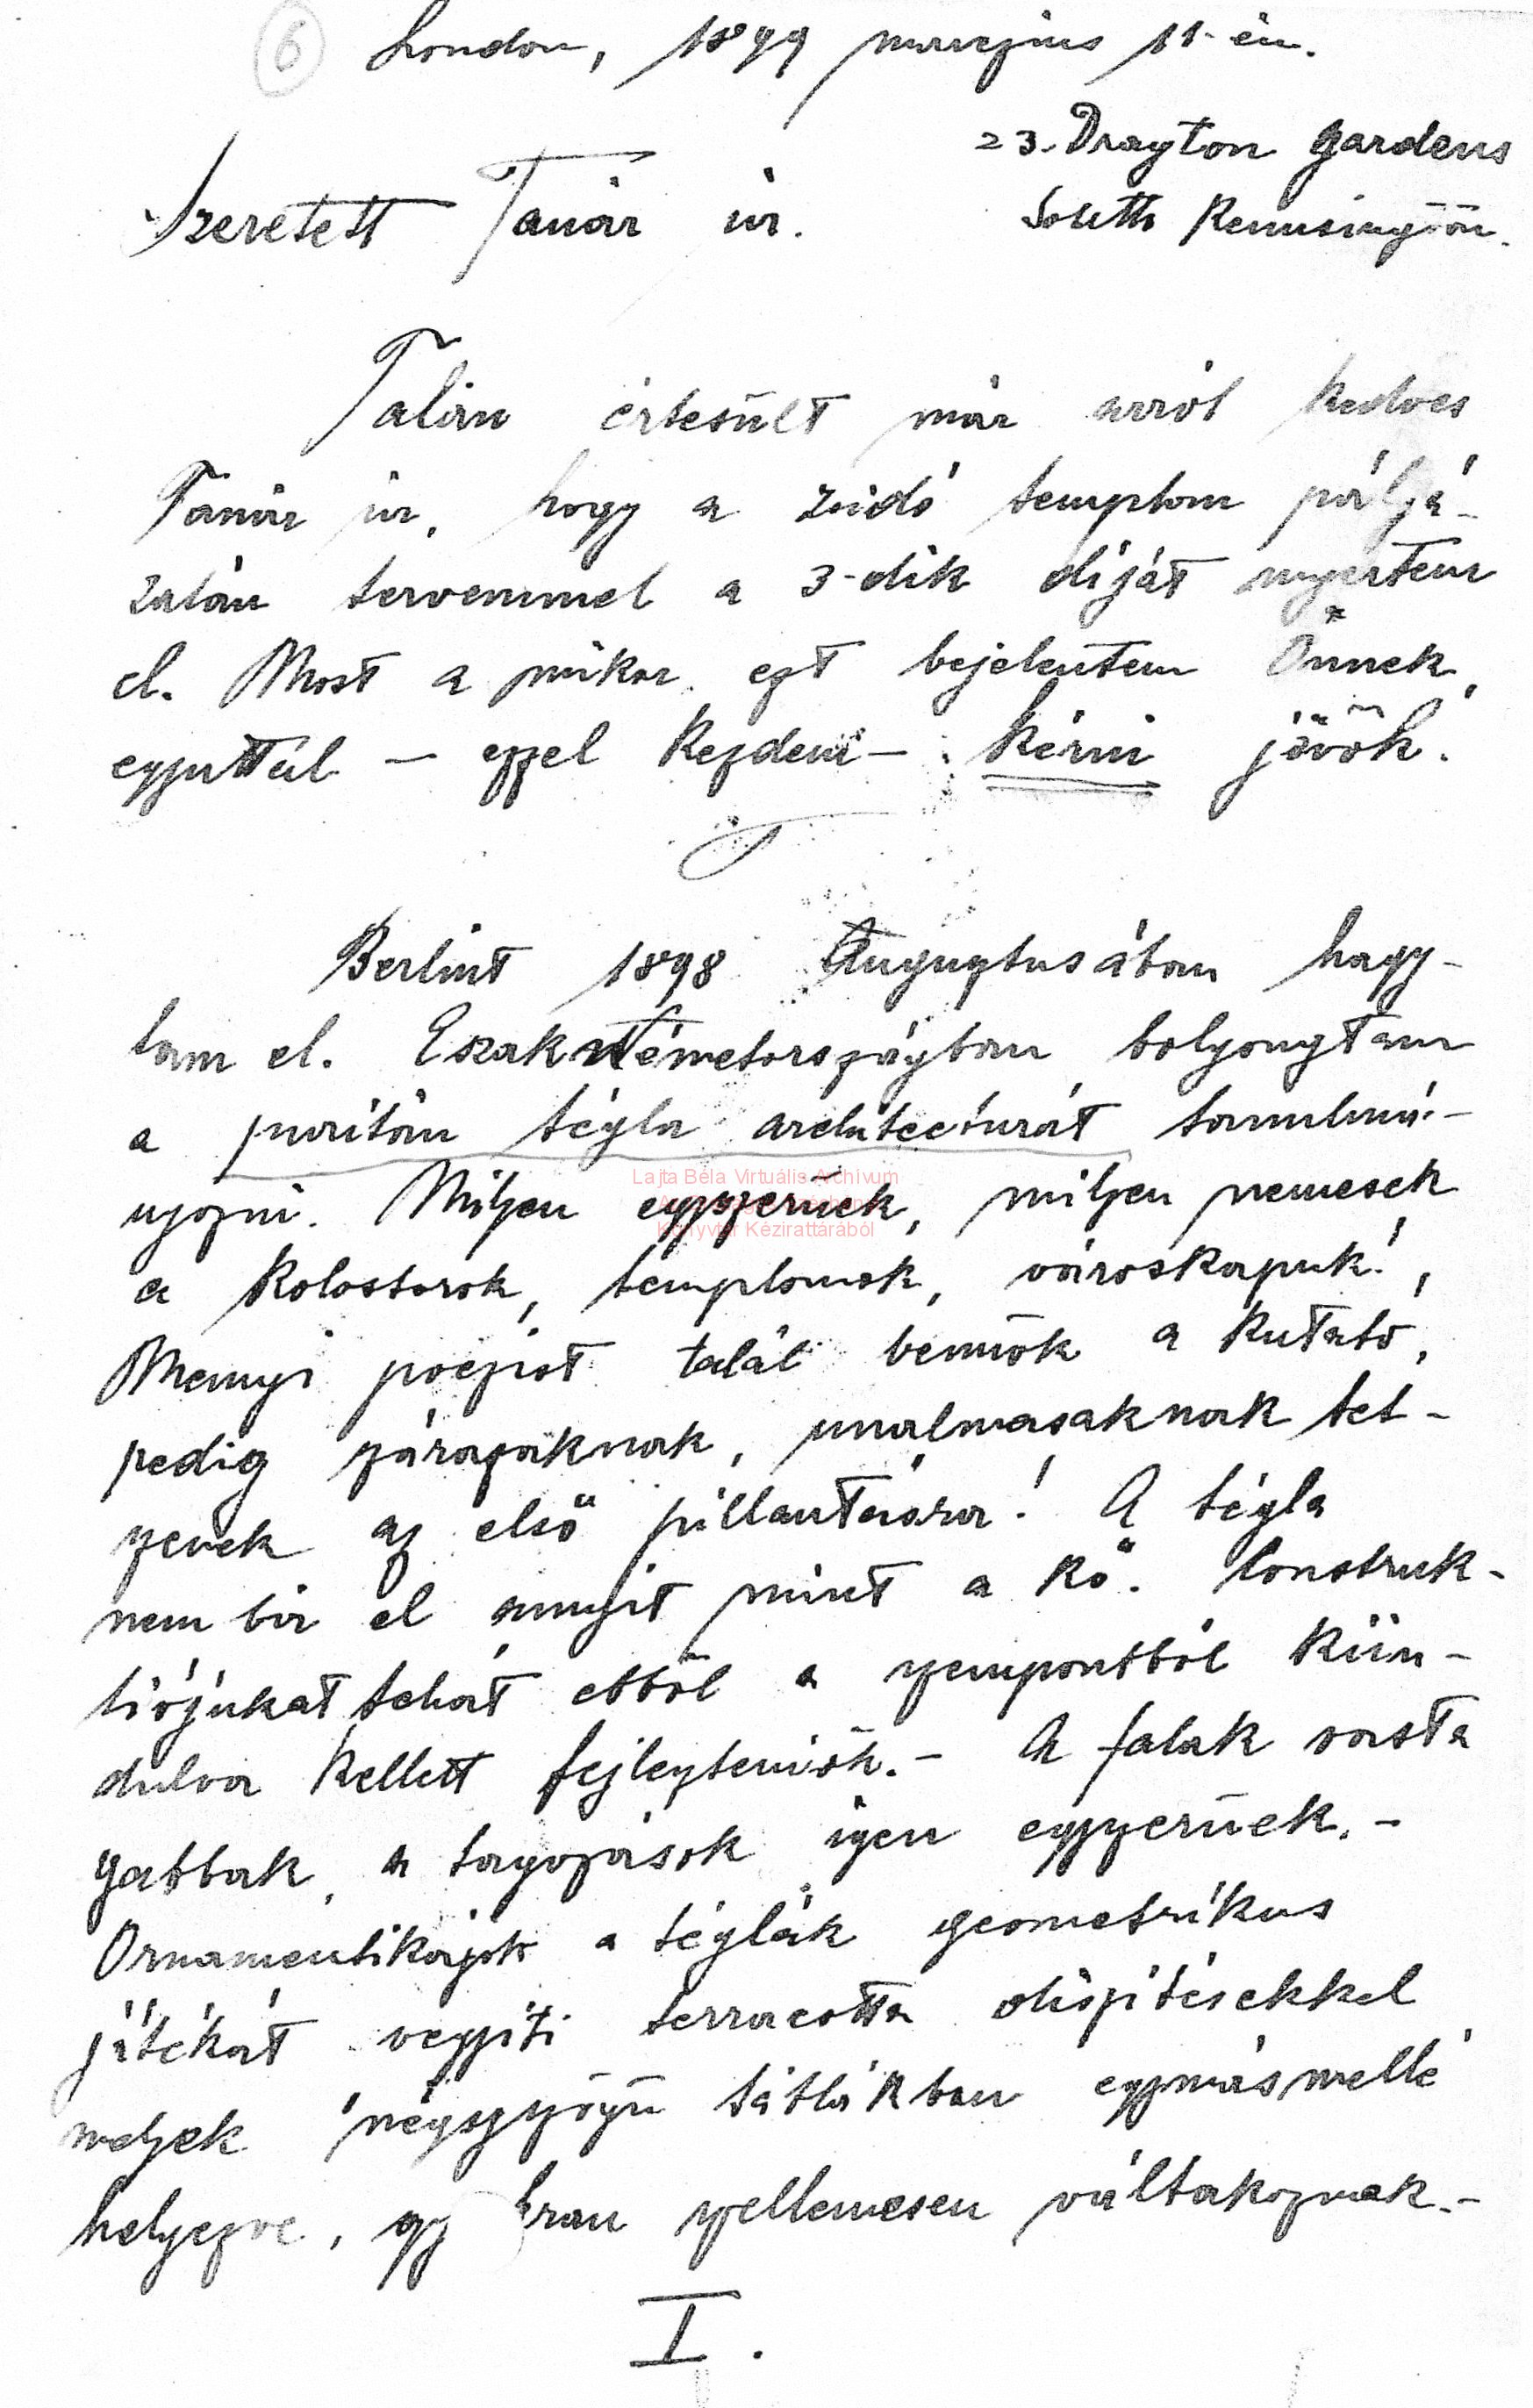 6
London, 1899 marczius 11-én.
23. Drayton Gardens
Szeretett Tanár úr.
South Kensington.
Talán értesült már arról kedves
Tanár úr, hogy a zsidó templom pályá-
zatán tervemmel a 3-dik díját nyertem
el. Most a mikor ezt bejelentem Önnek,
egyuttal – ezzel kezdem – kérni jövök.
Berlint 1898 Augusztusában hagy-
tam el. Északnémetországban bolyongtam
a puritán tégla architecturát tanulmá-
nyozni. Milyen egyszerüek, milyen nemesek
a kolostorok, templomok, városkapuk!,
Mennyi poezist talál bennök a kutató,
pedig szárazaknak, unalmasaknak tet-
szenek az első pillantásra! A tégla
nem bir el annyit mint a kő. Construk-
tiójukat tehát ebből a szempontból kiin-
dulva kellett fejleszteniök. – A falak vasta
gabbak, a tagozások igen egyszerüek. –
Ornamentikájok a téglák geometrikus
játékát vegyiti terracotta diszitésekkel
melyek négyszögü táblákban egymás mellé
helyezve, szellemesen váltakoznak. –
I.
Lajta Béla Virtuális Archívum
Könyvtár Kézirattárából